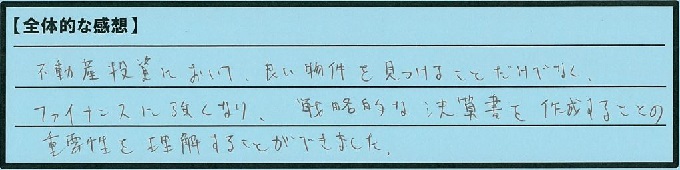 【全体的な感想】
不動産投資において、良い物件を見つけることだけでなく、
ファイナンスに強くなり、戦略的な決算書を作成することの
重要性を理解することができました。